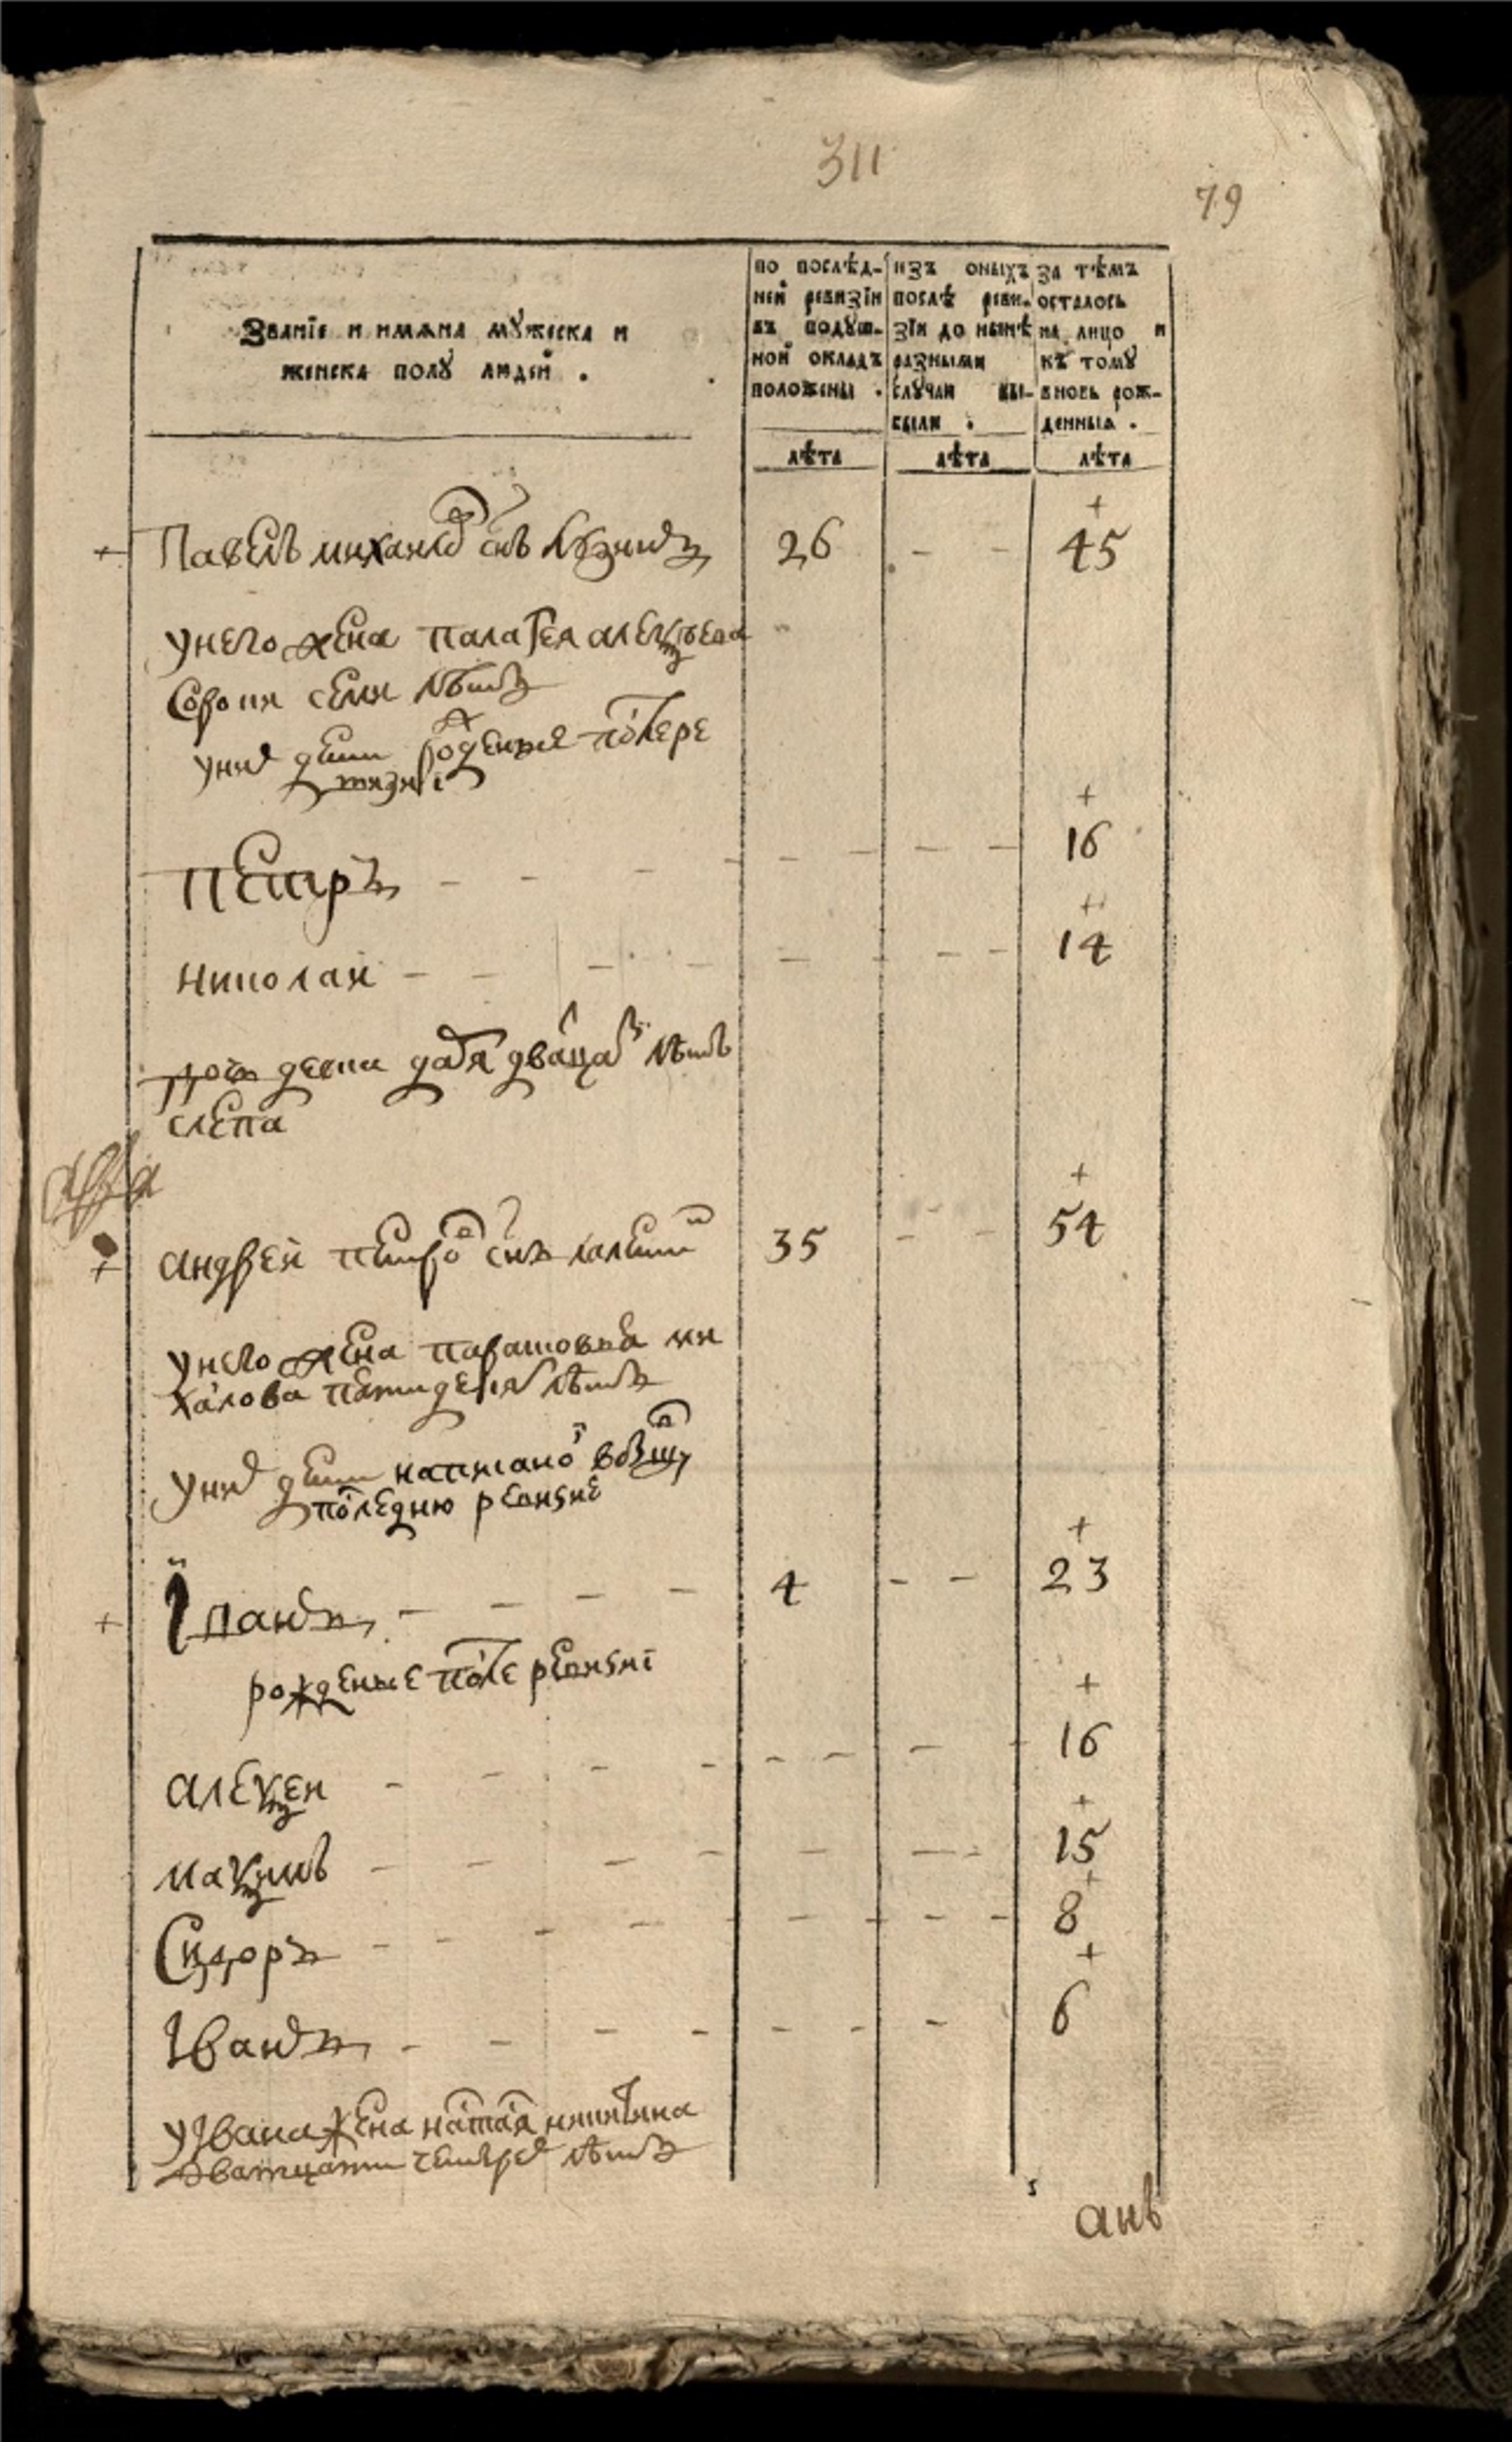 311
79
Званїе и имѧна мꙋжеска и
женска полꙋ людей .
по послѣд-
ней ревизїи
въ подꙋш-
ной окладъ
положены .
изъ оныхъ
послѣ реви-
зїи до нынѣ
разными
слꙋчаи вы-
были .
за тѣмъ
осталось
на лицо и
къ томꙋ
вновь рож-
денныѧ .
лѣта лѣта лѣта
+
+ Павелъ михаилов снъ 26 - - 45
у него жена палагея алеѯѣева
сорока семи лѣтъ
у них дети рожденые после ре
визиі
+
Петръ - - - 16
+
николай - - - 14
дочь девка дарья двацати лѣтъ
слепа
+
+ андрей петров снъ 35 - - 54
у него жена парасковья ми
хайлова пятидесят лѣтъ
у них дети написаной в бывшую
последнюю ревизие
+
+ Іванъ - - - 4 - - 23
рожденые после ревизиі
+
алеѯей - - - 16
+
маѯимъ - - - 15
+
Сидоръ - - - 8
+
Іванъ - - - 6
у Івана жена наталя никитина
дватцати четырех лѣтъ
анъ